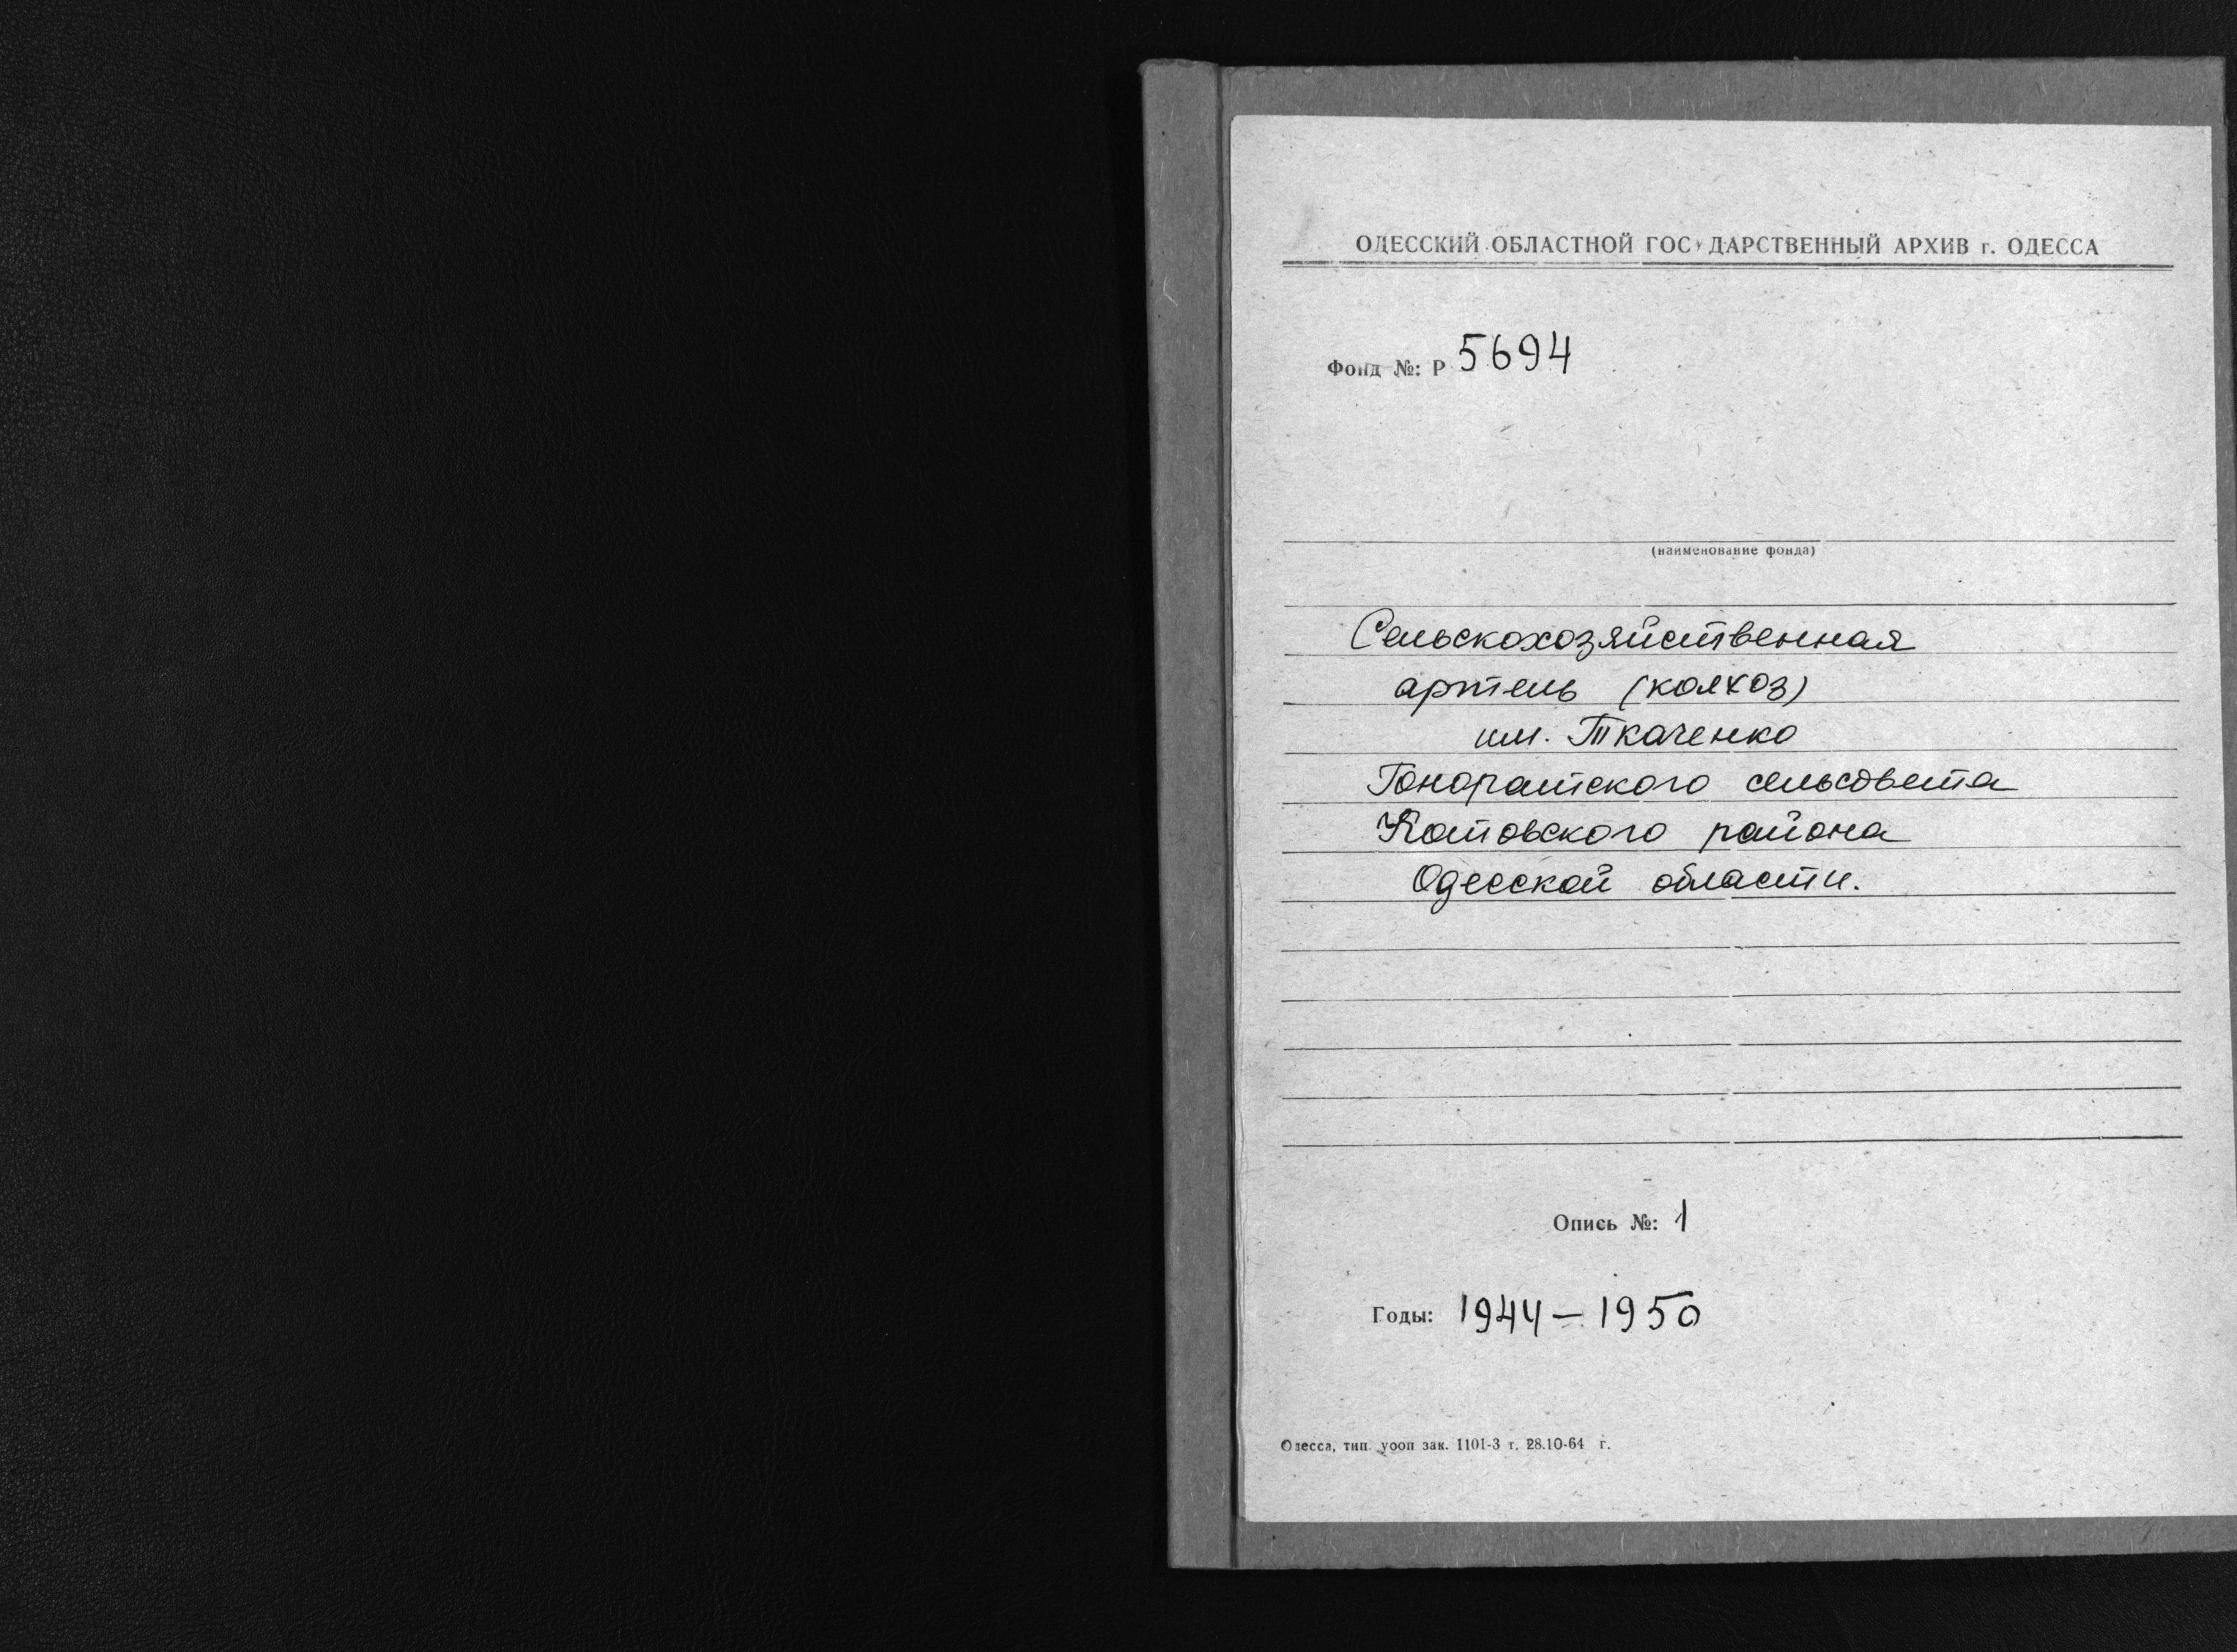 ОДЕССКИЙ ОБЛАСТНОЙ ГОСУДАРСТВЕННЫЙ АРХИВ г. ОДЕССА
Фонд №: Р 5694
(наименование фонда)
Сельскохозяйственная
артель (колхоз)
им. Ткаченко
Гоноратского сельсовета
Котовского района
Одесской области.
Опись №: 1
Годы: 1944 — 1950
Одесса, тип. уооп зак. 1101-3 т. 28.10-64 г.